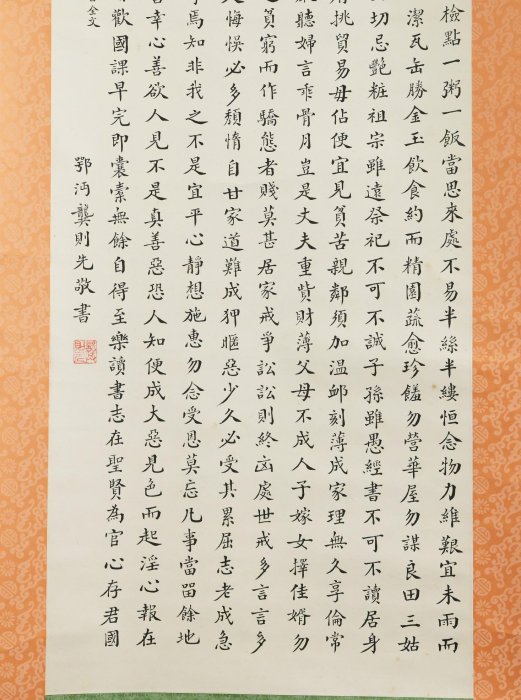 檢點一粥一飯當思來處不易半絲半縷恒念物力維艱宜未雨而
潔瓦缶勝金玉飲食約而精園蔬愈珍饈勿營華屋勿謀良田三姑
切忌艷粧祖宗雖遠祭祀不可不誠子孫雖愚經書不可不讀居身
挑貿易毋佔便宜見貧苦親鄰須加溫卹刻薄成家理無久享倫常
聽婦言乖骨月豈是丈夫重貲財薄父母不成人子嫁女擇佳婿勿
貧窮而作驕態者賤莫甚居家戒爭訟訟則終凶處世戒多言言多
悔悞必多頹惰自甘家道難成狎暱惡少久必受其累屈志老成急
焉知非我之不是宜平心靜想施惠勿念受恩莫忘凡事當留餘地
喜幸心善欲人見不是真善惡恐人知便成大惡見色而起淫心報在
歡國課早完即囊橐無餘自得至樂讀書志在聖賢為官心存君國
全文
鄂沔龔則先敬書